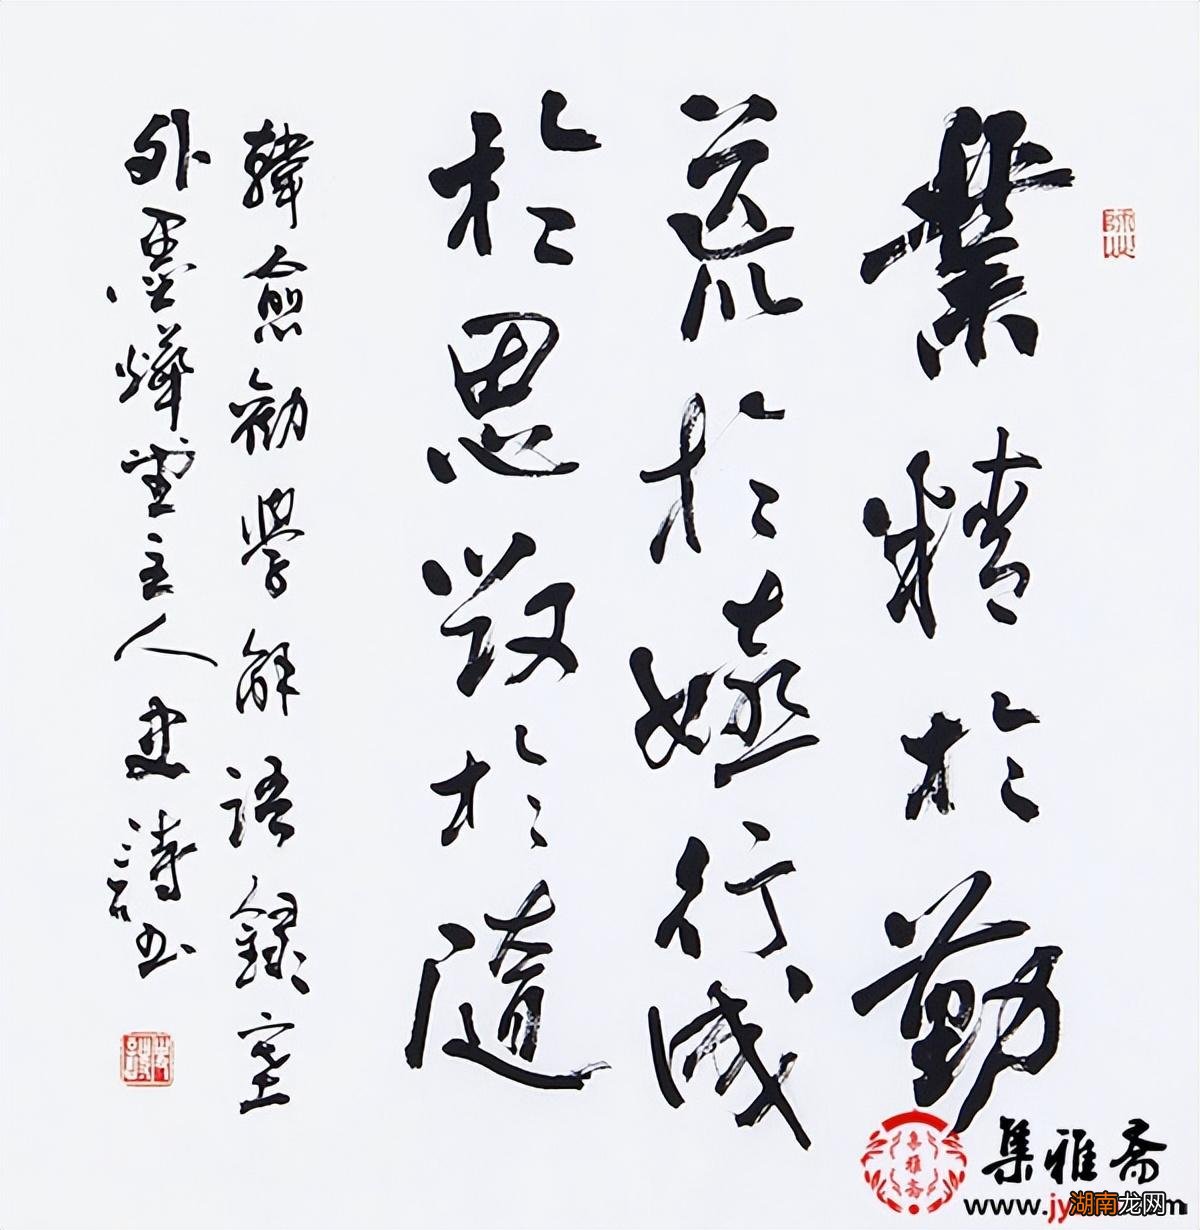 業精於勤
荒於嬉行成
於思毀於隨
韓愈勸學解語錄塞
外墨燁堂主人史书
集雅斋
集雅斋
www.jy
湖南龙网
m